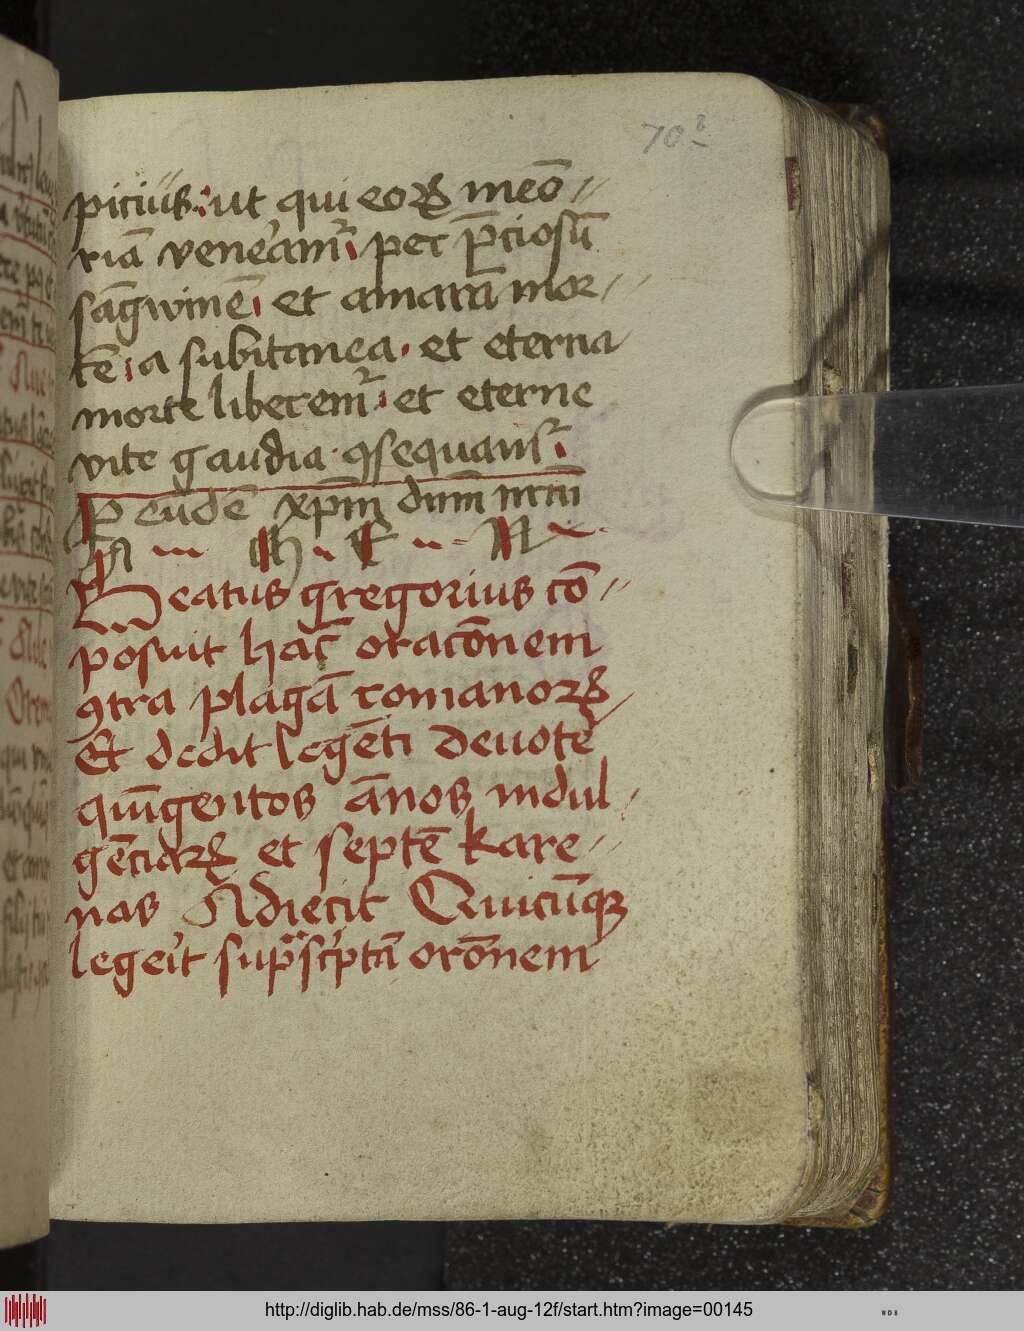 70ᵃ
piciūs : ut qui eoꝝ meō//
riā veneʼamʳ : per p̄ciosū
sāgwinē et amarā mor//
tē : a subitanea · et eterna
morte liberemʳ : et eterne
vite gaudia · ꝯsequamʳ :
P eūdē xp̄m dnm̄ nrm̄
Beatus gregorius cō//
posuit hac̄ oracōnem
ꝯtra plagā romanoꝝ
Et dedit legēti deuote
quīgentos ānos indul
gēciaꝝ et septē kare//
nas Adiecit Quicūqꝫ
legeʼit supᵃscͥptā orōnem
http://diglib.hab.de/mss/86-1-aug-12f/start.htm?image=00145